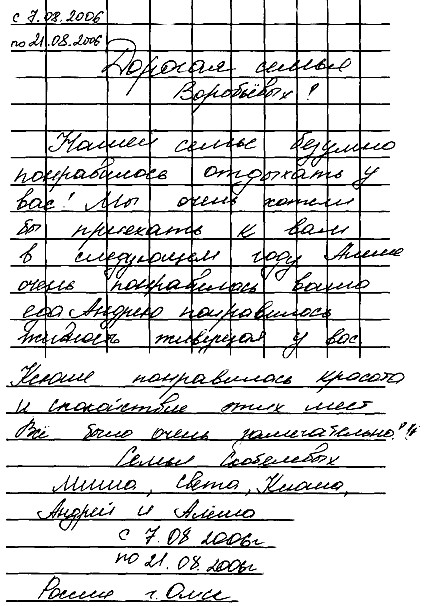 с 7.08.2006
по 21.08.2006
Дорогая семья
Воробьёвых!
Нашей семье безумно
понравилось отдыхать у
вас! Мы очень хотели
бы приехать к вам
в следующем году Алёше
очень понравилось ваша
еда Андрею понравилось
живность живущая у вас
Ксюше понравилось красота
и спокойствие этих мест
Всё было очень замечательно!!!
Семья Скобелевых
Миша, Света, Ксюша,
Андрей и Алёша
с 7.08 2006г
по 21.08.2006г
Россия г.Омск